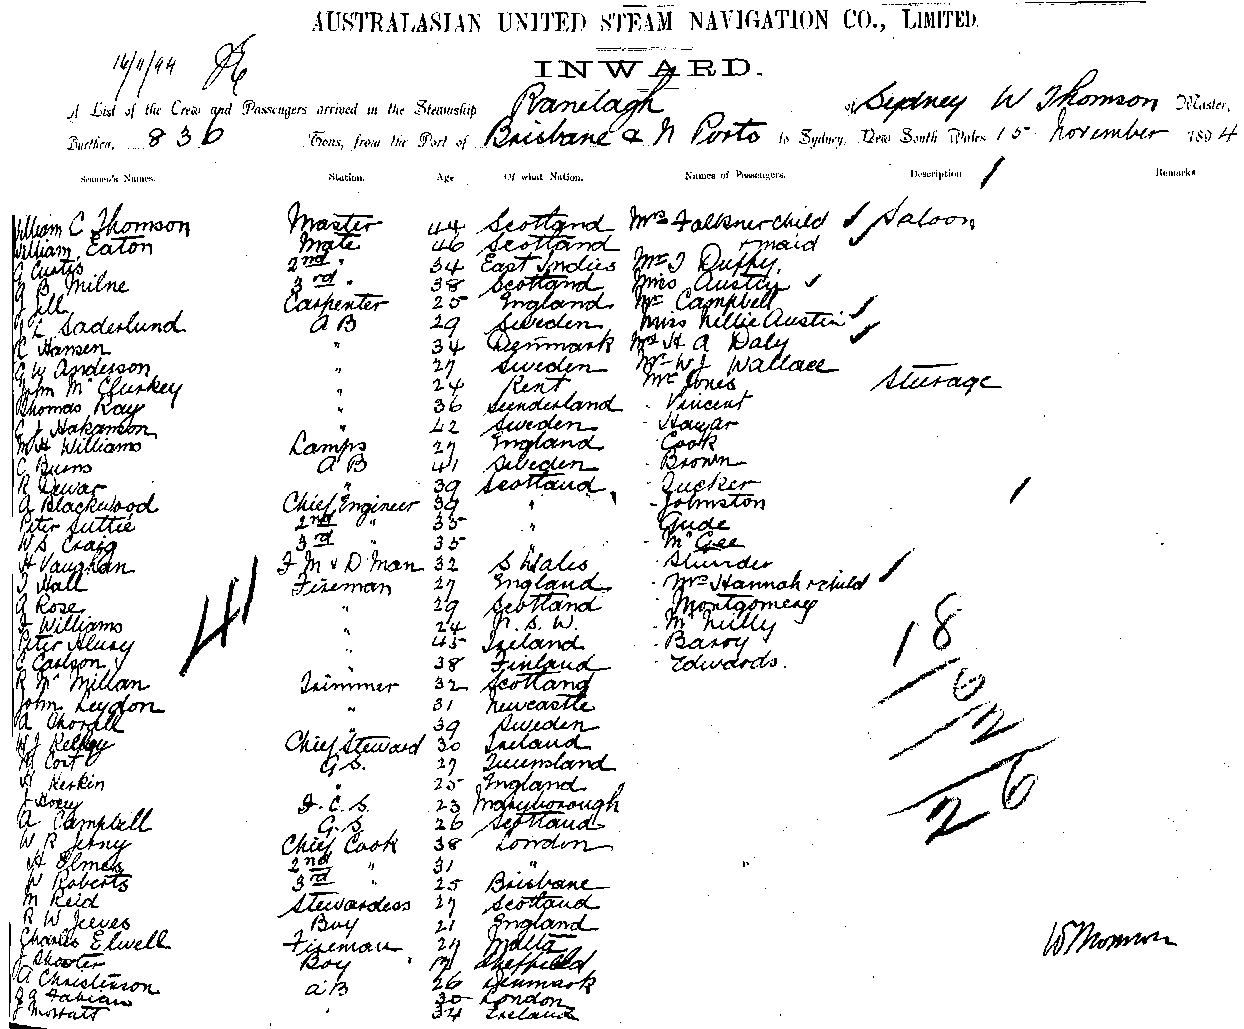 AUSTRALASIAN UNITED STEAM NAVIGATION CO., LIMITED.
16/11/94
INWARD.
A List of the Crew and Passengers arrived in the Steamship Ranelagh of Sydney W Thomson Master,
Burthen, 836 Tons, from the Port of Brisbane & N Ports to Sydney, New South Wales 15 November 1894
Seamen's Names. Station. Age Of what Nation. Names of Passengers. Description Remarks
William C Thomson Master 44 Scotland Mrs Falkner child Saloon
William Eaton Mate 46 Scotland & maid
G Curtis 2nd " 34 East Indies Mr J Duffy
G B Milne 3rd " 38 Scotland Miss Austin
J Ell Carpenter 25 England Mr Campbell
Saderlund A B 29 Sweden Miss Nellie Austin
C Hansen " 34 Denmark Mrs H A Daly
G W Anderson " 27 Sweden Mr W J Wallace
John McClurkey " 24 Kent Mr Jones Sturage
Thomas Kay " 36 Sunderland - Vincent
C J Hakanson " 42 Sweden - Hayar
M H Williams Lamps 27 England - Cook
C Burns A B 41 Sweden - Brown
R Dewar " 39 Scotland - Tucker
A Blackwood Chief Engineer 39 " - Johnston
Peter Suttie 2nd " 35 " Gude
W S Craig 3rd " 35 " - McGee
H Vaughan F M & D Man 32 S Wales - Slunder
J Hall Fireman 27 England - Mrs Hannah & child
G Rose " 29 Scotland - Montgomery
J Williams " 24 N. S. W. - McNully
Peter " 45 Ireland - Barry
C Carlson " 38 Finland - Edwards.
R McMillan Trimmer 32 Scotland
John Leydon " 31 Newcastle
A Chorall " 39 Sweden
W J Kelley Chief Steward 30 Ireland
M Cort G.S. 27 Queensland
H Kerkin " 25 England
J F.C.S. 23 Maryborough
A Campbell G.S. 26 Scotland
W R Jenny Chief Cook 38 London
H Elmes 2nd " 31 "
W Roberts 3rd " 25 Brisbane
M Reid Stewardess 27 Scotland
R W Jeeves Boy 21 England
Charles Elwell Fireman 27 Malta
J Shooter Boy 17 Sheffield
A Christenson A B 26 Denmark
J G Fabian 30 London
J Moffatt " 34 Ireland
41
18
6
2
26
W Thomson